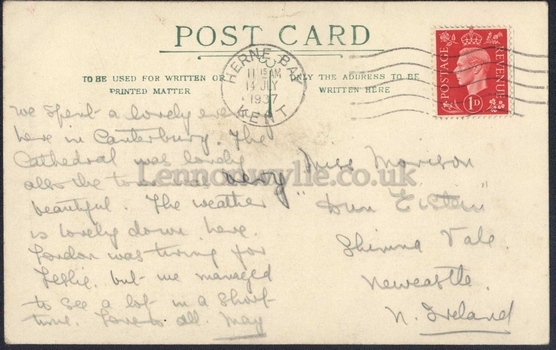 POST CARD
TO BE USED FOR WRITTEN OR PRINTED MATTER
ONLY THE ADDRESS TO BE WRITTEN HERE
HERNE BAY
11 15 AM
14 JLY
1937
KENT
POSTAGE REVENUE
1D
We spent a lovely
here in Canterbury. The
Cathedral was lovely
also the town is very
beautiful. The weather
is lovely down here.
London was tiring for
Leslie. but we managed
to see a lot in a short
time. Love to all. May
Miss Morison
"Dun
Shimna Vale.
Newcastle.
N. Ireland
Lennonwylie.co.uk